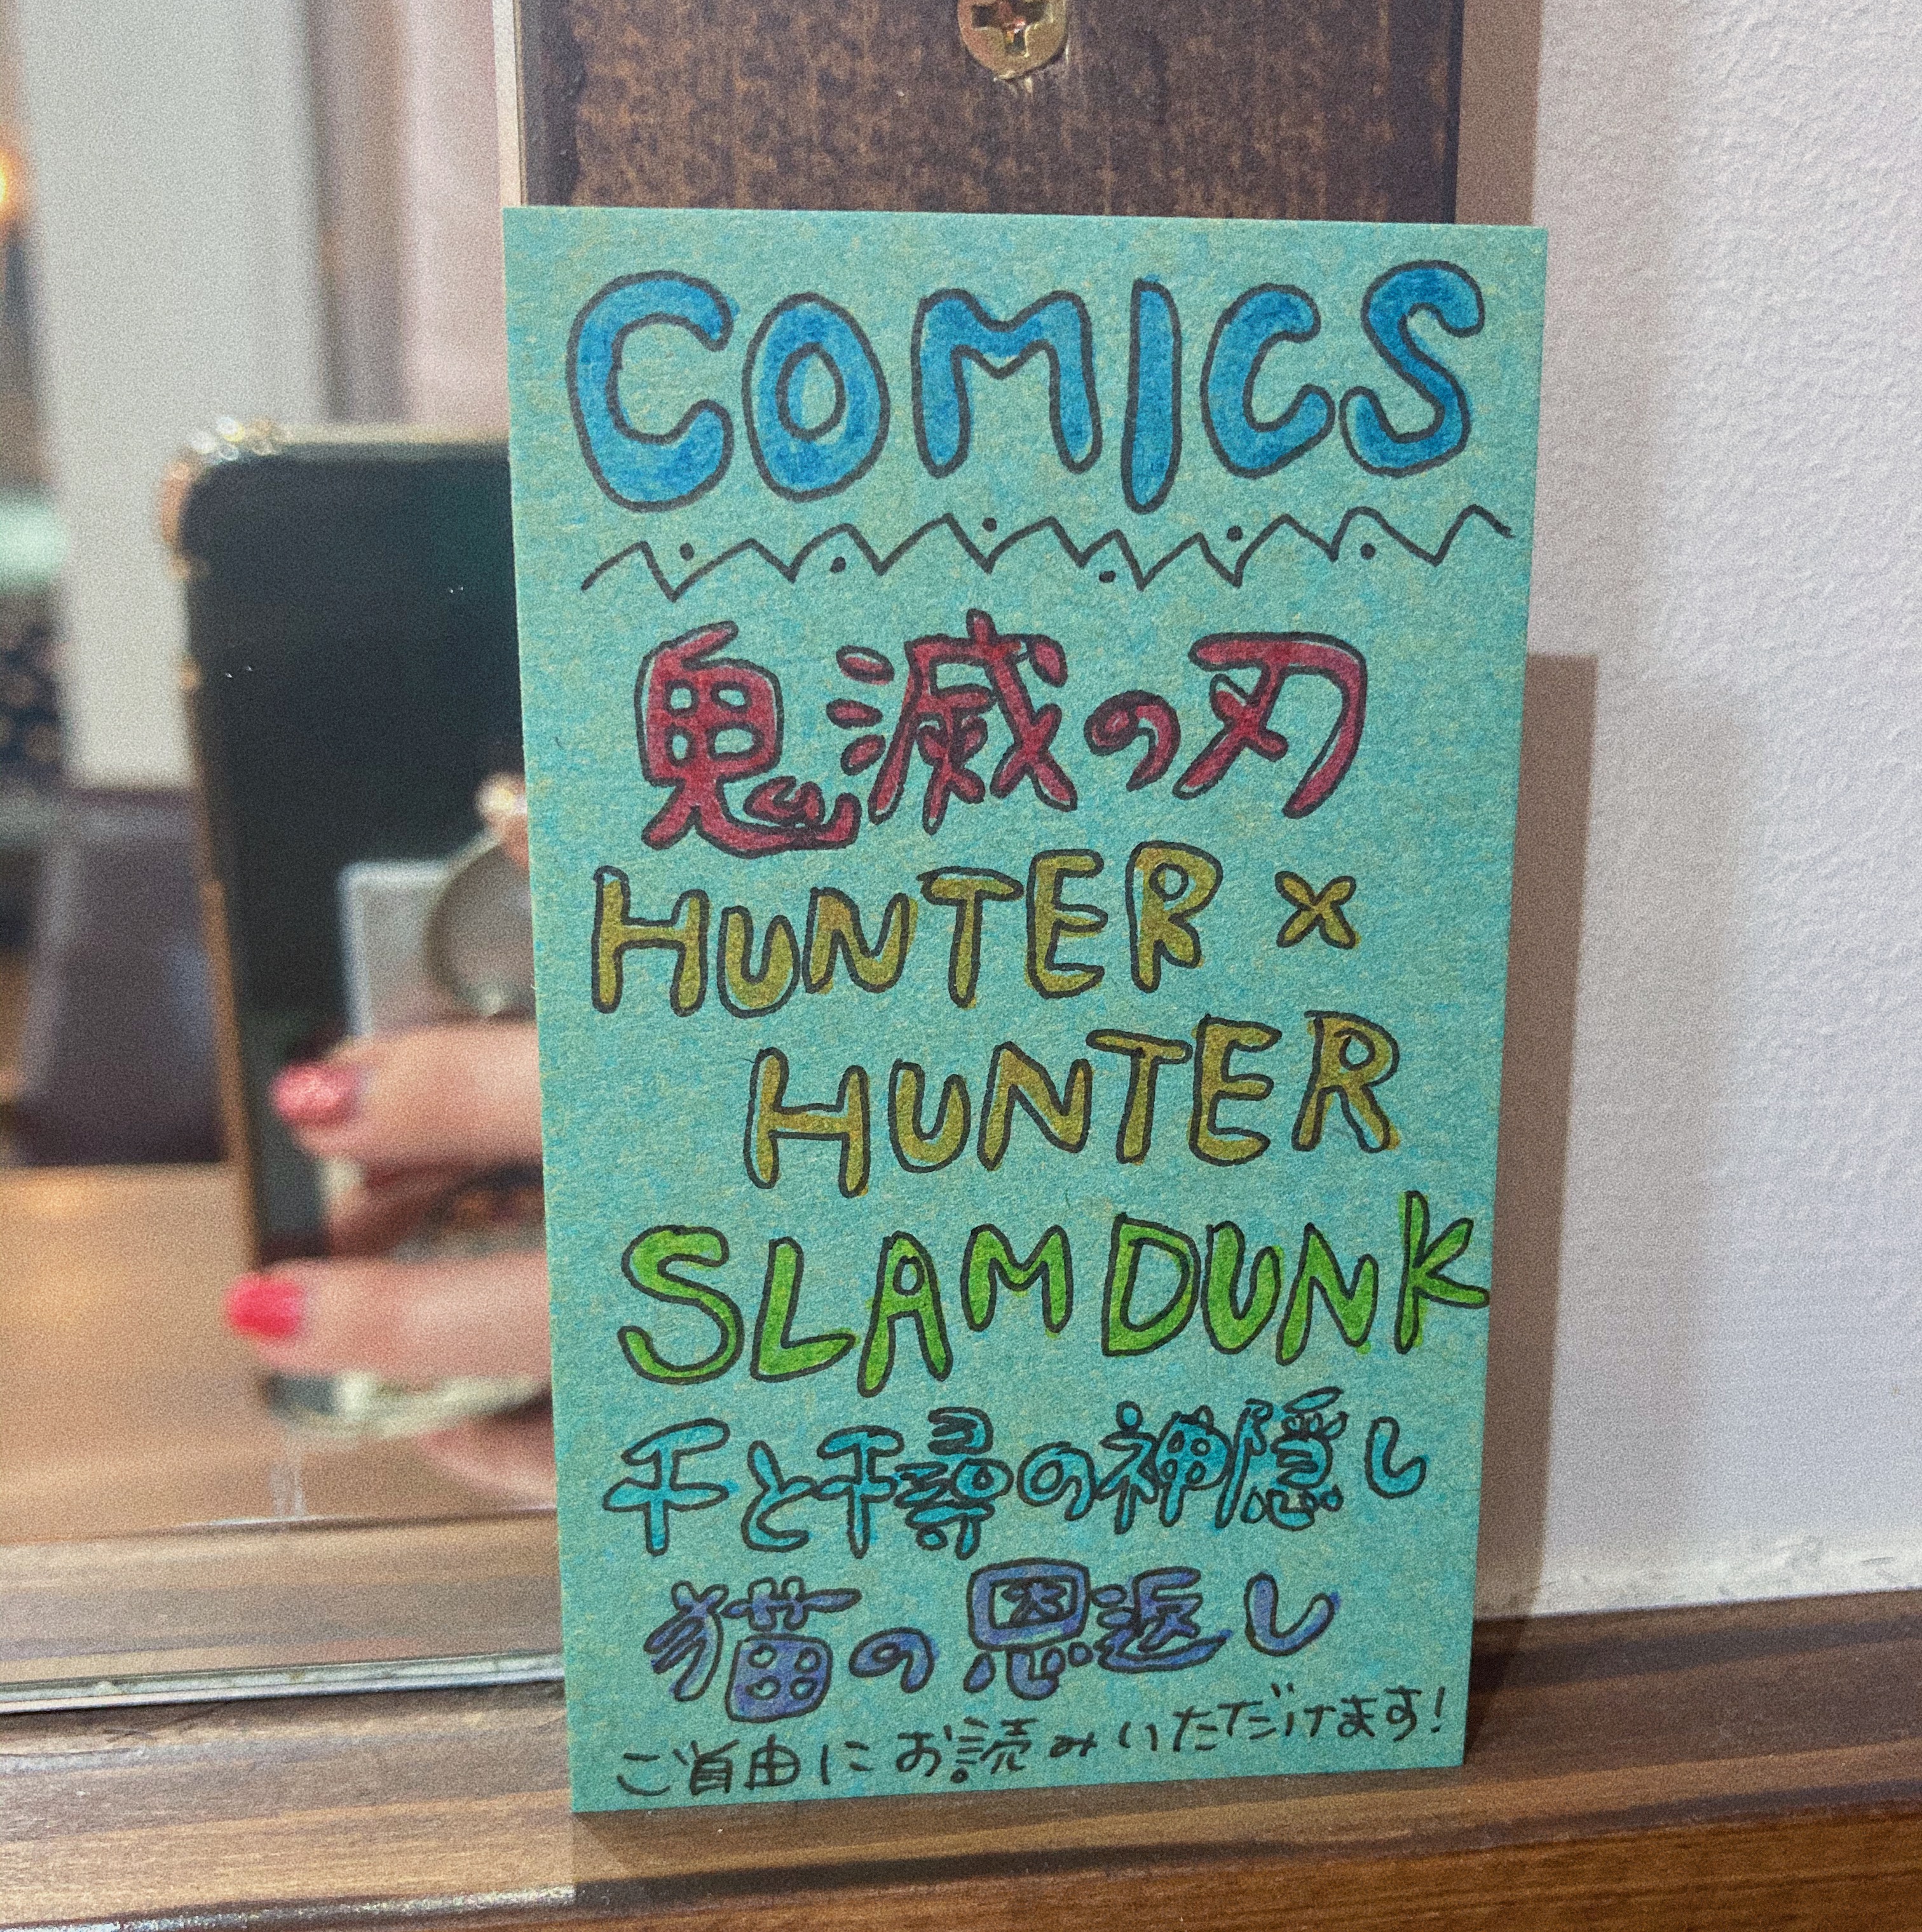 COMICS
鬼滅の刃
HUNTER ×
HUNTER
SLAM DUNK
千と千尋の神隠し
猫の恩返し
ご自由にお読みいただけます!